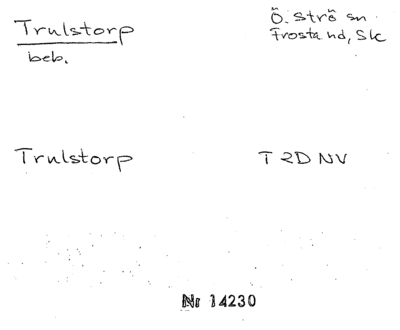 Trulstorp
beb.
Ö. Strö sn
Frosta hd, Sk
Trulstorp
T 2D NV
Nr 14230